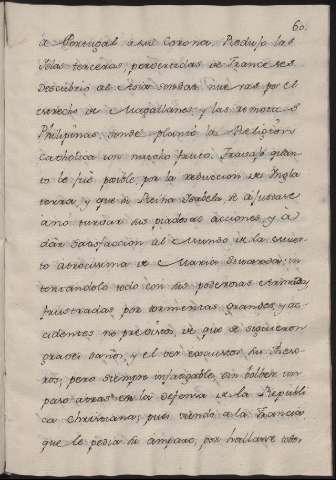 60.
à Portugal à su Corona. Redujo las
Islas terceras, pertrechadas de Franceses
Descubrio al Asia sendas nuevas por el
estrecho de Magallanes, y las remotas
Philipinas, donde planto la Religion
Catholica con mucho fruto. Trabajò quan-
to le fuè posible, por la reduccion de Ingla
terra, y que la Reina Isabela se ajustase
à no turbar sus piadosas acciones, y à
dàr satisfaccion al Mundo de la muer
te atrocissima de Maria Estuarda, in
tentandolo todo con sus poderosas Armadas,
frustradas por tormentas grandes, y ac-
cidentes no previstos, de que se siguieron
graves daños, y el ver exaustos sus Theso-
ros; pero siempre infatigable, sin bolber un
paso atras en la defensa de la Republi
ca Christiana; pues viendo a la Francia,
que le pedia su amparo, por hallarse toda